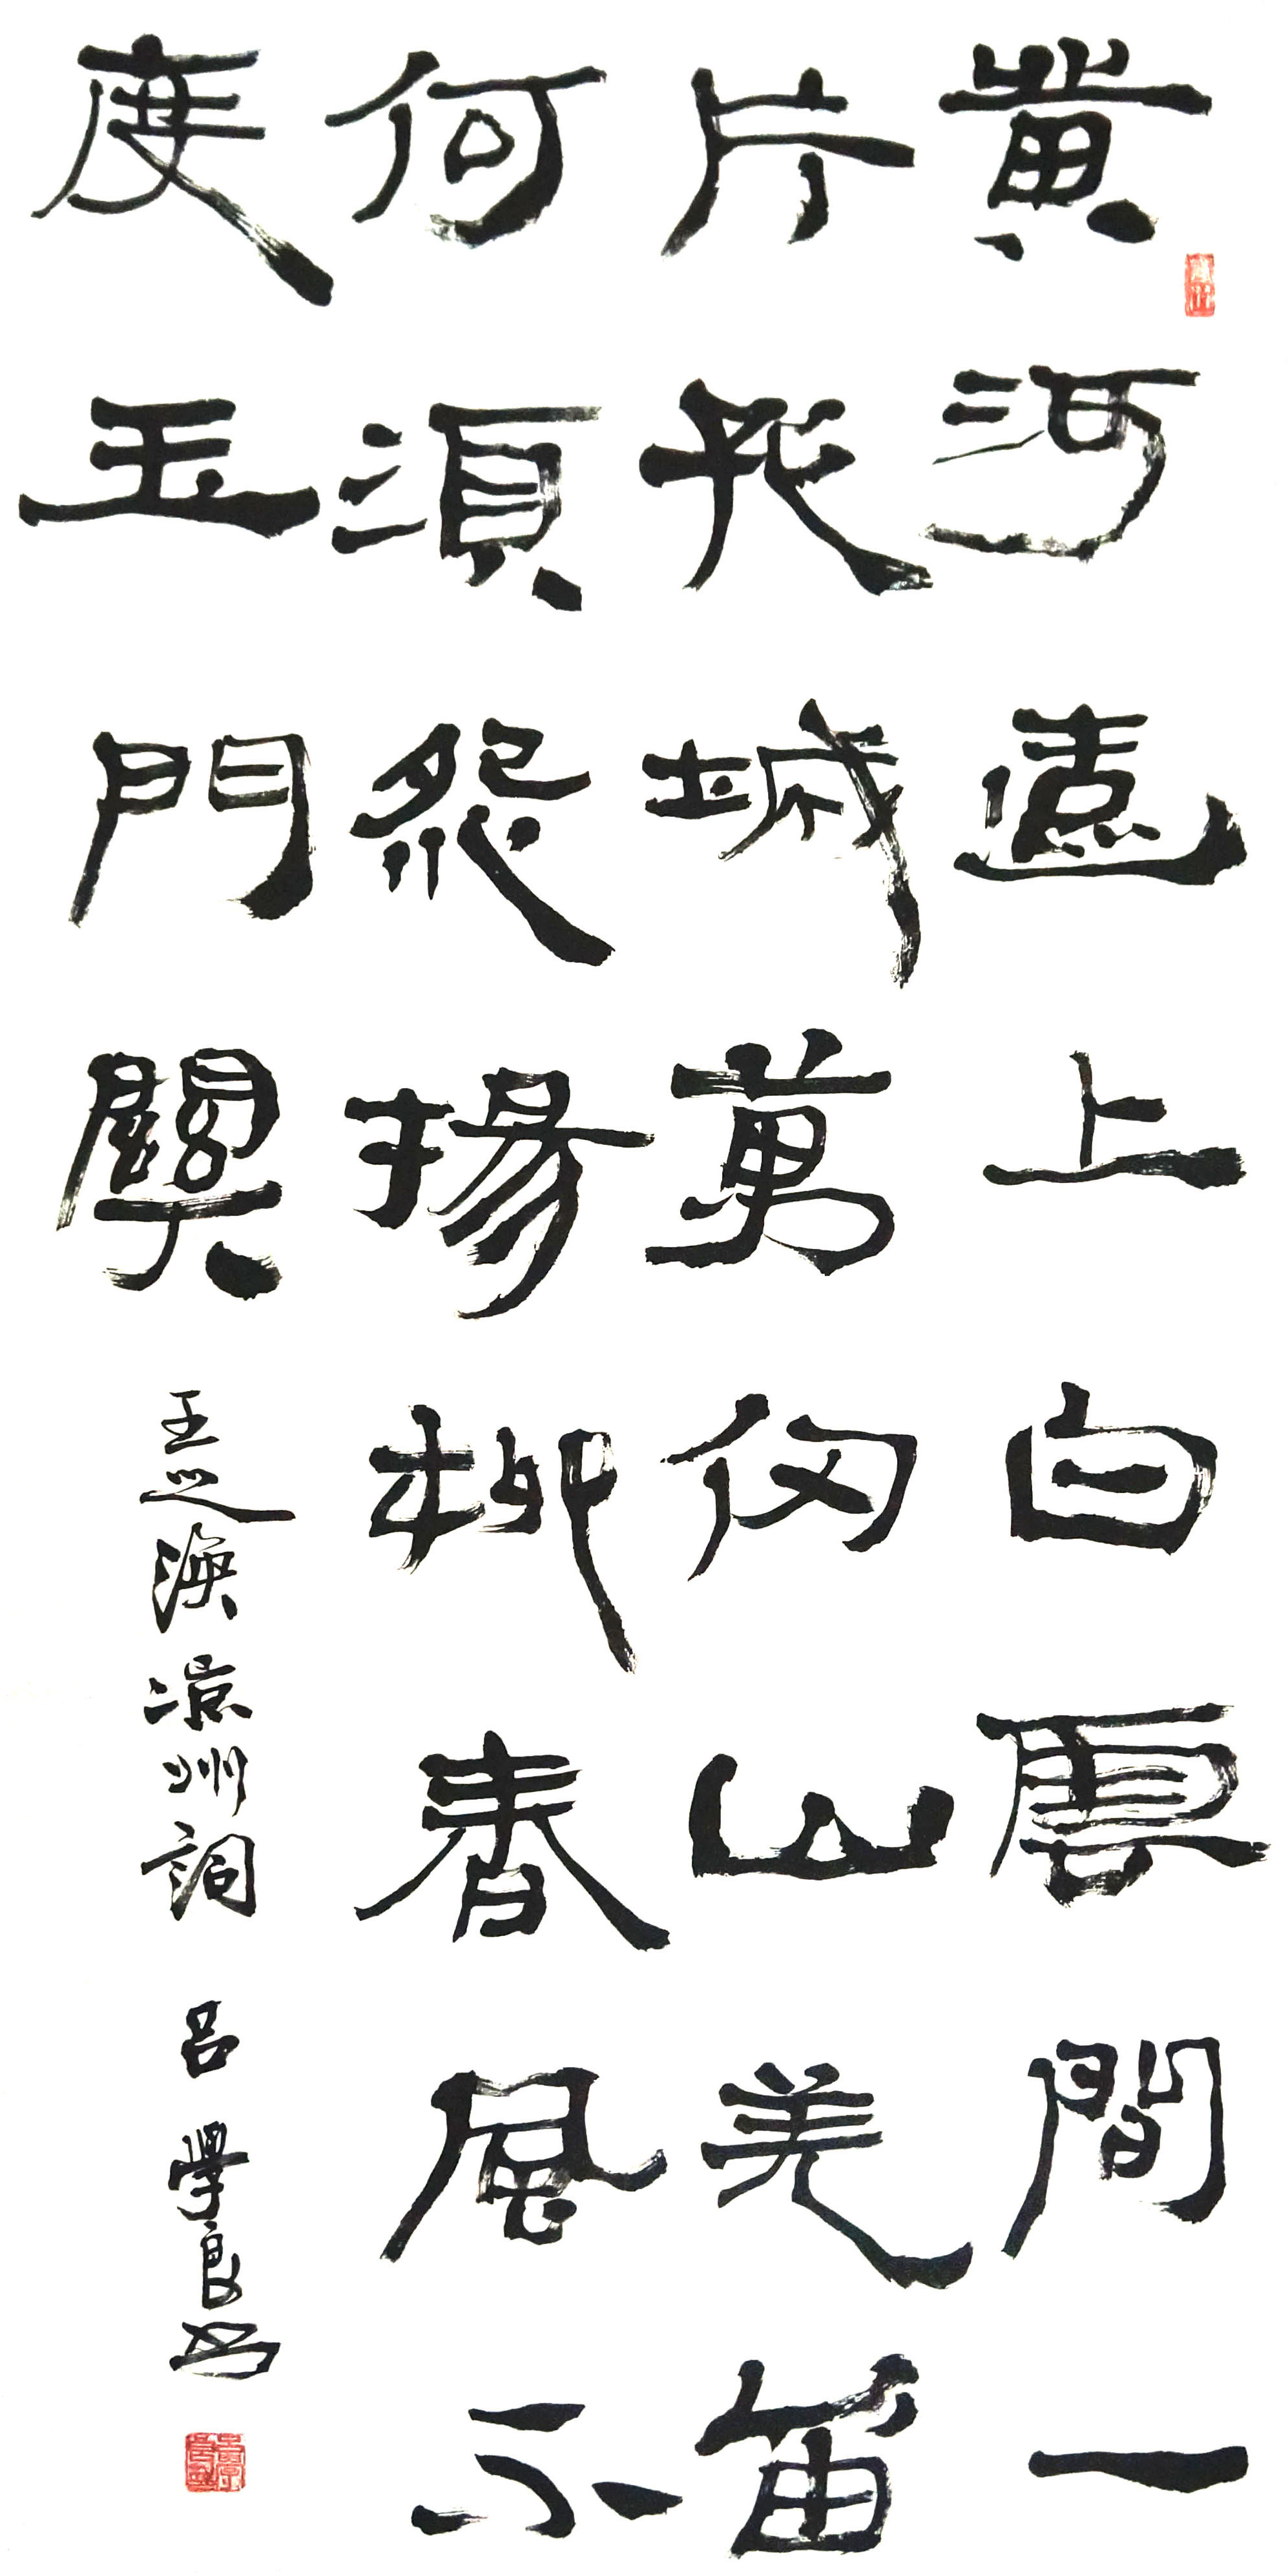 黄河遠上白雲間一
片孤城萬仞山羌笛
何須怨揚柳春風不
度玉門關
王之渙凉州詞 吕學良书